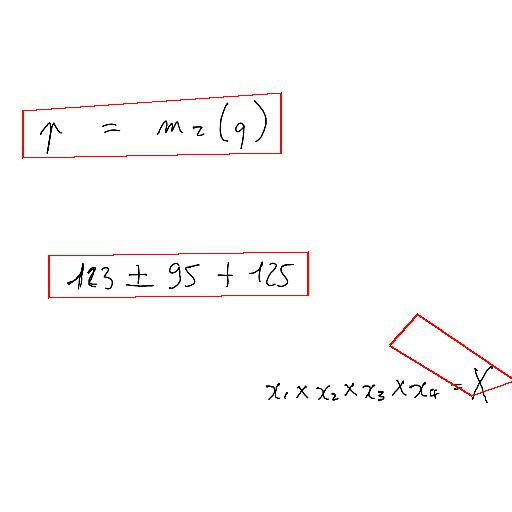 p = m₂(q)
123 ± 95 + 125
x₁ × x₂ × x₃ × x₄ = X